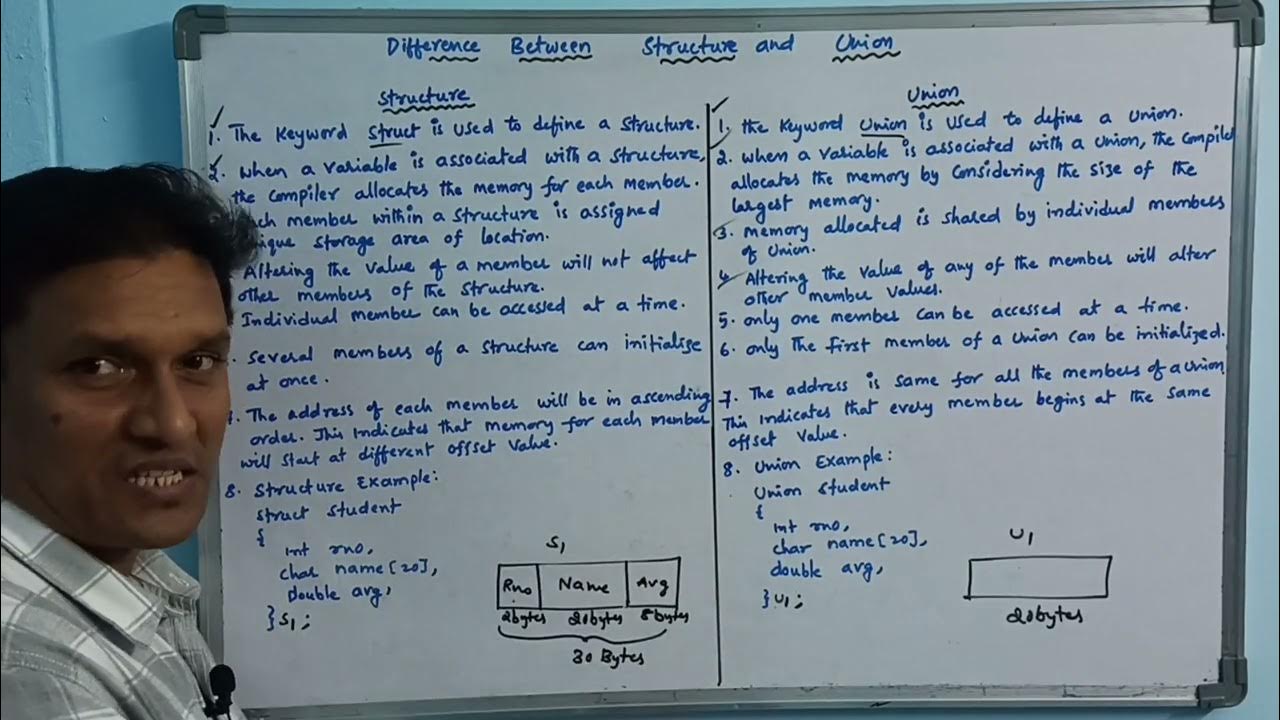 Difference Between Structure and Union
Structure
1. The Keyword Struct is used to define a Structure.
2. When a variable is associated with a structure,
the compiler allocates the memory for each member.
member within a structure is assigned
storage area of location.
Altering the value of a member will not affect
other members of the structure.
Individual member can be accessed at a time.
Several members of a structure can initialize
at once.
7. The address of each member will be in ascending
order. This indicates that memory for each member
will start at different offset value.
8. Structure Example:
Struct Student
{
int rno,
char name[20],
double avg,
} S1;
S1
Rno Name Avg
2bytes 20bytes 8bytes
30 Bytes
Union
1. The Keyword Union is used to define a Union.
2. When a variable is associated with a union, the compile
allocates the memory by considering the size of the
largest memory.
3. Memory allocated is shared by individual members
of union.
4. Altering the value of any of the member will alter
other member values.
5. only one member can be accessed at a time.
6. only the first member of a union can be initialized.
7. The address is same for all the members of a union
This indicates that every member begins at the same
offset value.
8. Union Example:
Union Student
{
int rno,
char name[20],
double avg,
} U1;
U1
20bytes